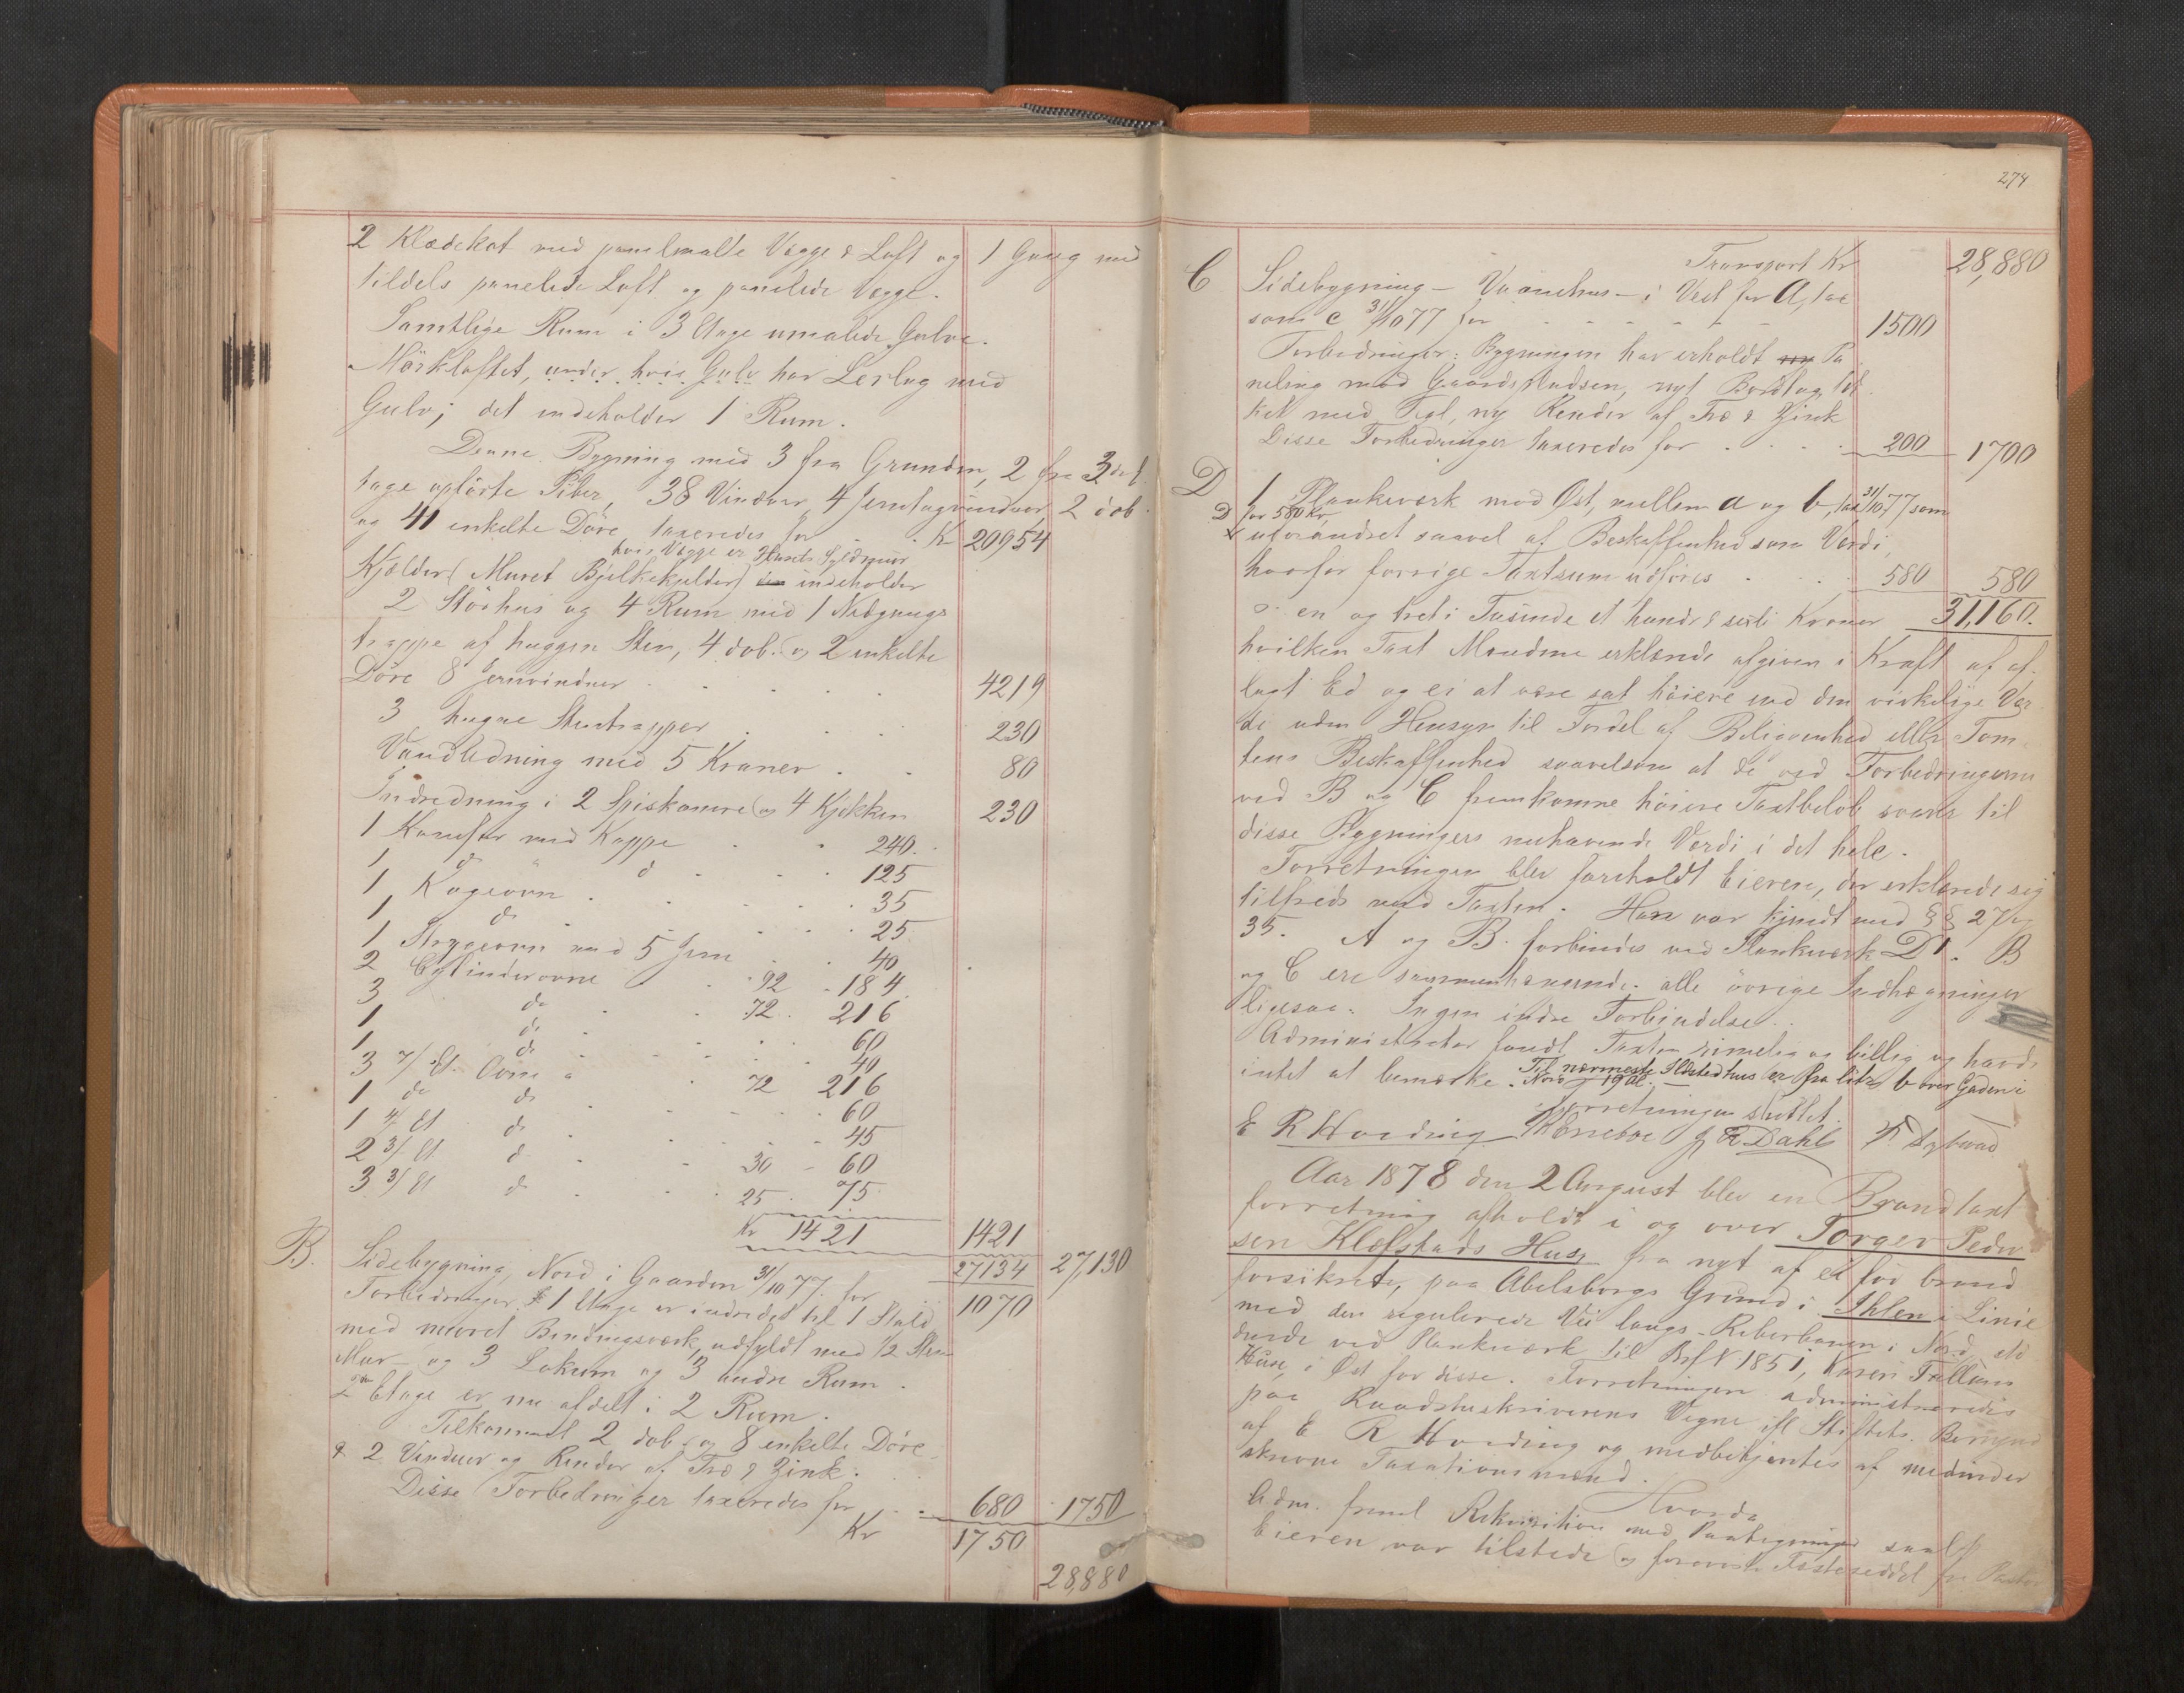 2 Klædekot med panelmalte Vægge & Loft og 1 Gang med
tildels panelede Loft og panelede Vægge.
Samtlige Rum i 3 Etage umalede Gulve.
Mörkloftet, under hvis Gulv har Lerlag med
Gulv; det indeholder 1 Rum.
Denne Bygning med 3 fra Grunden, 2 fra 3die E
tage opførte Piber, 38 Vinduer, 4 Jerntagvinduer, 2 dob.
og 41 enkelte Döre taxeredes for Kr 20954
hvis Vægge er
Kjælder (Muret Bjelkekjelder) indeholder
2 Störhus og 4 Rum med 1 Nedgangs
trappe af huggen Sten, 4 dob. og 2 enkelte
Döre 8 Jernvinduer 4219
3 hugne Stentrapper 230
Vandledning med 5 Kraner 80
Indredning i 2 Spiskamre og 4 Kjøkken 230
1 Komfur med Kappe 240
1 do do 125
1 Kogeovn 35
1 do 25
1 Strygeovn med 5 Jern 40
2 Cylinderovne 92 184
3 do 72 216
1 do 60
1 do 40
3 7/ Et. Ovne a 72 216
1 do do 60
1 4/ Et do 45
2 3/ Et do 30 60
3 3/ Et do 25 75
Kr 1421 1421
27134 27,130
B. Sidebygning, Nord i Gaarden 31/10 77 for 1070
Forbedringer. 1 Etage er indredet til 1 Stald
med muret Bindingsværk, udfyldt med 1/2 Stens
Mur og 3 Lokum og 3 andre Rum.
2den Etage er nu afdelt i 2 Rum.
Tilkommet 2 dob. og 8 enkelte Döre
& 2 Vinduer og Render af Træ & Zink.
Disse Forbedringer taxeredes for 680 1750
Kr 1750
28,880
274
Transport Kr 28,880
C Sidebygning - Vaanehus - i Vest for A, tax
som C 31/10 77 for 1500
Forbedringer: Bygningen har erholdt ny Pa
neling mod Gaardspladsen, nyt Bordtag, tæk
ket med Tegl, ny Render af Træ & Zink
Disse Forbedringer taxeredes for 200 1700
D 1 Plankeværk mod Øst, mellem A og b, tax 31/10 77 som
D for 580 Kr,
uforandret saavel af Beskaffenhed som Værdi,
hvorfor forrige Taxtsum udföres 580 580
en og treti Tusinde et hundre & sexti Kroner 31,160.
hvilken Taxt Mændene erklærede afgiven i Kraft af af-
lagt Ed og ei at være sat höiere end den virkelige Vær
di uden Hensyn til Fordel af Beliggenhed eller Tom
tens Beskaffenhed saavelsom at de ved Forbedringerne
ved B og C fremkomne höiere Taxtbelöb svarer til
disse Bygningers nuhavende Værdi i det hele.
Forretningen blev foreholdt Eieren, der erklærede sig
tilfreds med Taxten. Han var kjendt med §§ 27 og
35. A og B. forbindes ved Plankværk D 1. B
og C ere sammenhængende. alle övrige Indhegninger
ligesaa. Ingen indre Forbindelse.
Administrator fandt Taxten rimelig og billig og havde
intet at bemærke. Til nærmeste Ildstedhus er fra litr. b over Gaden i
Nord 19 al.
Forretningen sluttet.
E R Hvoding J R Dahl
Aar 1878 den 2 August blev en Brandtaxt
forretning afholdt i og over Torger Peder
sen Klefstads Hus, fra nyt af ei för brand
forsikrede, paa Abelsborgs Grund i Ihlen i Linie
med den regulerede Vei langs Reberbanen i Nord, stö
dende ved Plankværk til Brf N 1851, Karen Fallans
Huse, i Øst for disse. Forretningen administreredes
paa Raadstueskriverens Vegne ifl Stiftets Bemynd
af E R Hvoding og medbetjentes af medunder
skrevne Taxationsmænd.
Hvorda
Adm. freml Rekvisition med Paategninger saal.
Eieren var tilstede og foreviste Fæsteseddel fra Pastor